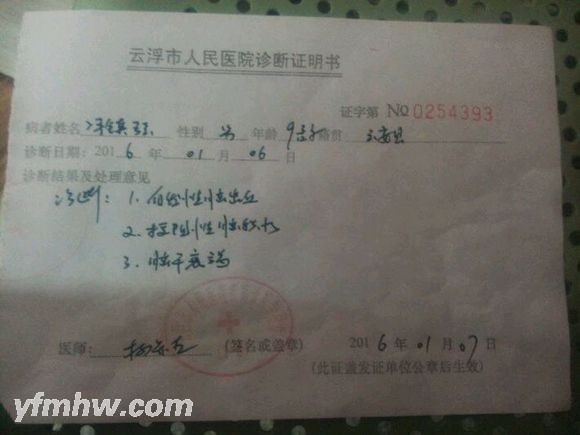 云浮市人民医院诊断证明书
证字第 №0254393
病者姓名 性别 男 年龄 9 籍贯 云安县
诊断日期：2016 年 01 月 06 日
诊断结果及处理意见
诊断：1. 自发性脑出血
2. 梗阻性脑积水
3. 脑干衰竭
医师： (签名或盖章) 2016 年 01 月 07 日
(此证盖发证单位公章后生效)
yfmhw.com
yfmhw.com